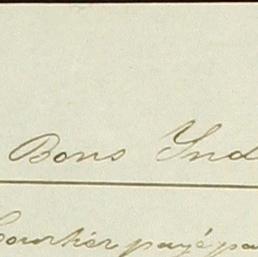 Bons Ind
Courtier payé pa